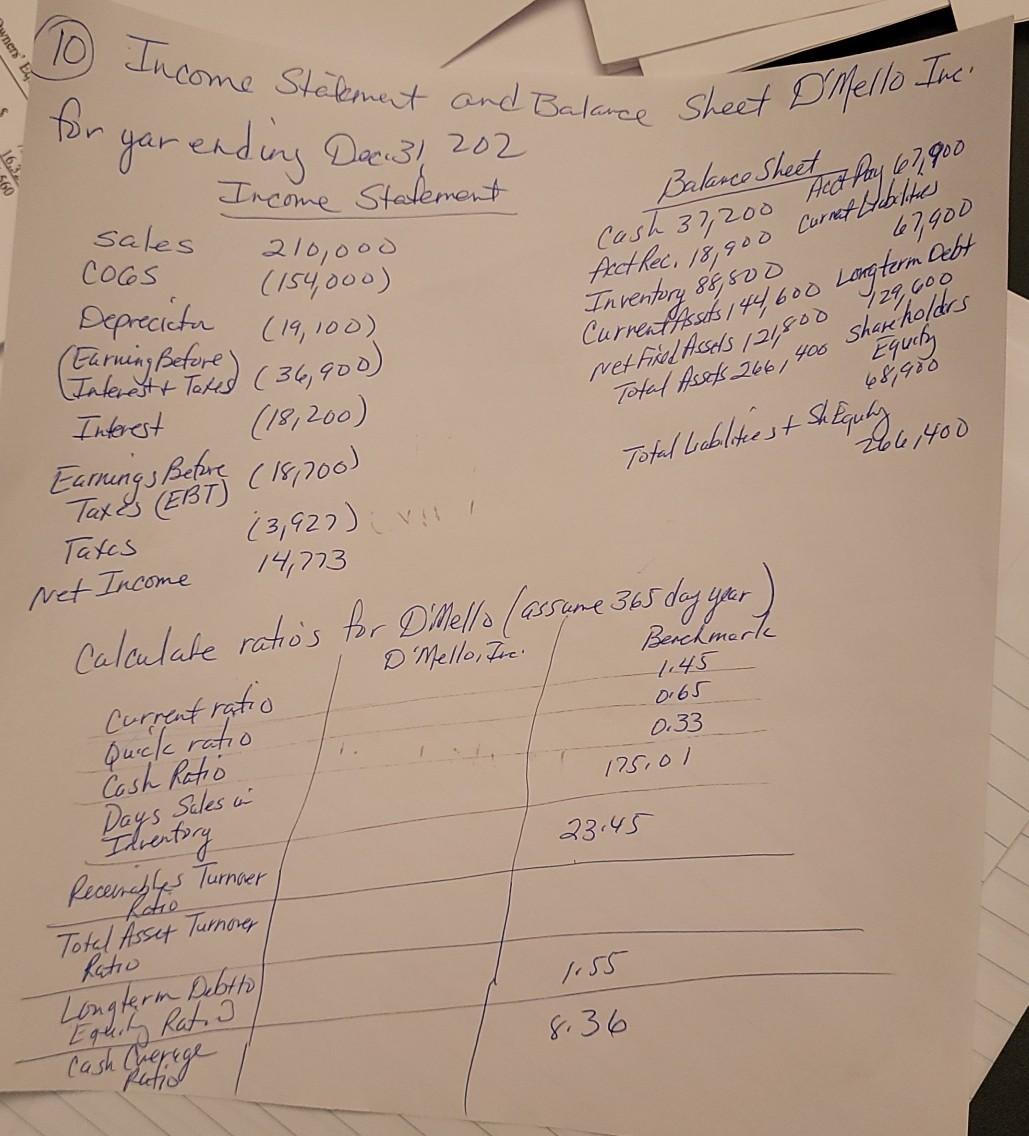 wners' Eq
16,3
560
10 Income Statement and Balance Sheet D'Mello Inc.
for yar ending Dec. 31, 202
Income Statement
Sales 210,000
COGS (154,000)
Depreciatn (19,100)
(Earning Before
Interest + Taxes) (36,900)
Interest (18,200)
Earnings Before
Taxes (EBT) (18,700)
Taxes (3,927)
Net Income 14,773
Balance Sheet
Cash 37,200 Acct Pay 67,900
Acct Rec. 18,900 Current Liabilities
67,900
Inventory 88,500
Current Assets 144,600 Long term Debt
129,600
Net Fixed Assets 121,800 Shareholders
Equity
68,900
Total Assets 266,400
Total Liabilities + Sh Equity
266,400
Calculate ratio's for D'Mello (assume 365 day year)
D'Mello, Inc. Benchmark
Current ratio 1.45
Quick ratio 0.65
Cash Ratio 0.33
Days Sales in
Inventory 175.01
Receivables Turnover
Ratio 23.45
Total Asset Turnover
Ratio
Long term Debt to
Equity Ratio 1.55
Cash Coverage
Ratio 8.36